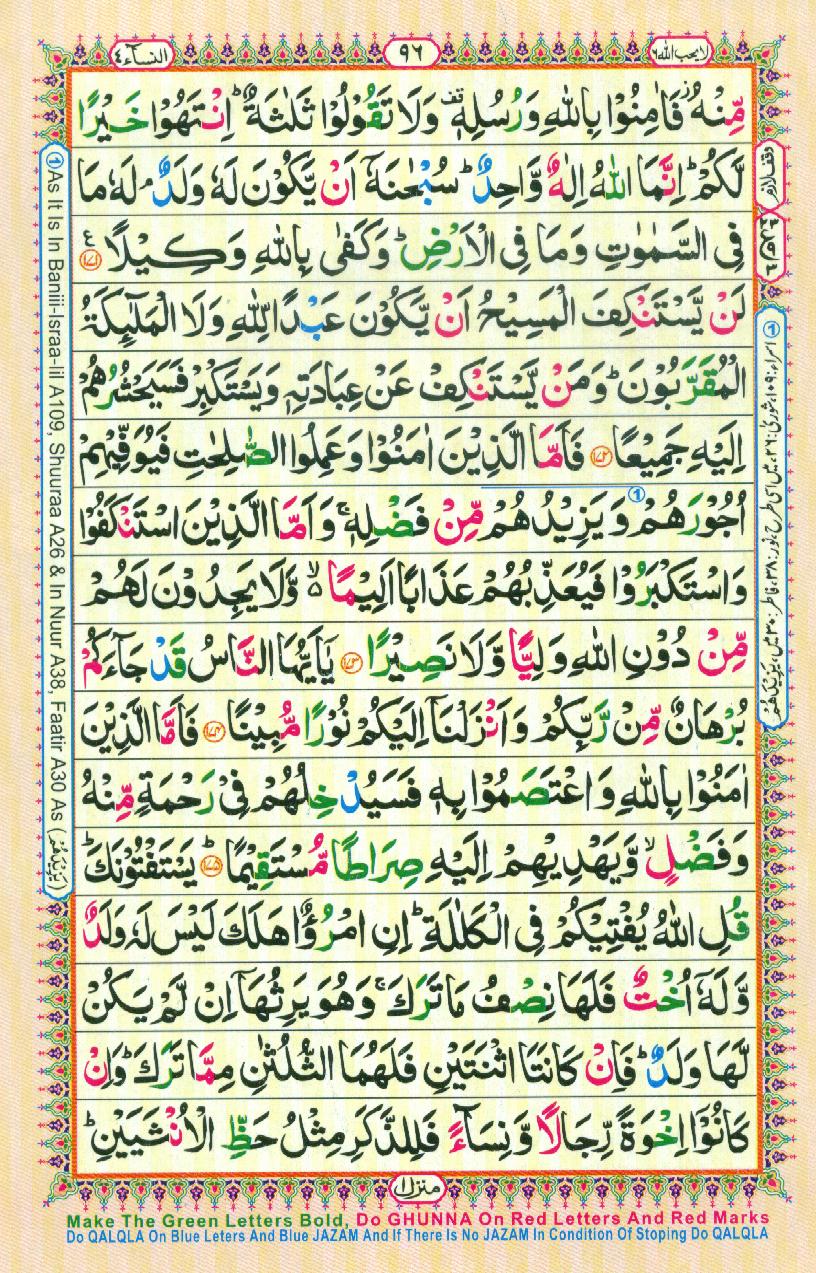 لا يحب الله ٦
٩٦
النسآء ٤
مِّنْهُ ۫ فَاٰمِنُوْا بِاللّٰهِ وَرُسُلِهٖ ۫ وَلَا تَقُوْلُوْا ثَلٰثَةٌ ؕ اِنْتَهُوْا خَيْرًا
لَّكُمْ ؕ اِنَّمَا اللّٰهُ اِلٰهٌ وَّاحِدٌ ؕ سُبْحٰنَهٗۤ اَنْ يَّكُوْنَ لَهٗ وَلَدٌ ۘ لَهٗ مَا
فِى السَّمٰوٰتِ وَمَا فِى الْاَرْضِ ؕ وَكَفٰى بِاللّٰهِ وَكِيْلًا ﴿۱۷۱﴾ ع
لَنْ يَّسْتَنْكِفَ الْمَسِيْحُ اَنْ يَّكُوْنَ عَبْدًا لِّلّٰهِ وَلَا الْمَلٰٓئِكَةُ
الْمُقَرَّبُوْنَ ؕ وَمَنْ يَّسْتَنْكِفْ عَنْ عِبَادَتِهٖ وَيَسْتَكْبِرْ فَسَيَحْشُرُهُمْ
اِلَيْهِ جَمِيْعًا ﴿۱۷۲﴾ فَاَمَّا الَّذِيْنَ اٰمَنُوْا وَعَمِلُوا الصّٰلِحٰتِ فَيُوَفِّيْهِمْ
اُجُوْرَهُمْ وَيَزِيْدُهُمْ ① مِّنْ فَضْلِهٖ ۚ وَاَمَّا الَّذِيْنَ اسْتَنْكَفُوْا
وَاسْتَكْبَرُوْا فَيُعَذِّبُهُمْ عَذَابًا اَلِيْمًا ۙ۵ وَّلَا يَجِدُوْنَ لَهُمْ
مِّنْ دُوْنِ اللّٰهِ وَلِيًّا وَّلَا نَصِيْرًا ﴿۱۷۳﴾ يٰۤاَيُّهَا النَّاسُ قَدْ جَآءَكُمْ
بُرْهَانٌ مِّنْ رَّبِّكُمْ وَاَنْزَلْنَاۤ اِلَيْكُمْ نُوْرًا مُّبِيْنًا ﴿۱۷۴﴾ فَاَمَّا الَّذِيْنَ
اٰمَنُوْا بِاللّٰهِ وَاعْتَصَمُوْا بِهٖ فَسَيُدْخِلُهُمْ فِىْ رَحْمَةٍ مِّنْهُ
وَفَضْلٍ ۙ وَّيَهْدِيْهِمْ اِلَيْهِ صِرَاطًا مُّسْتَقِيْمًا ﴿۱۷۵﴾ ؕ يَسْتَفْتُوْنَكَ ؕ
قُلِ اللّٰهُ يُفْتِيْكُمْ فِى الْكَلٰلَةِ ؕ اِنِ امْرُؤٌا هَلَكَ لَيْسَ لَهٗ وَلَدٌ
وَّلَهٗۤ اُخْتٌ فَلَهَا نِصْفُ مَا تَرَكَ ۚ وَهُوَ يَرِثُهَاۤ اِنْ لَّمْ يَكُنْ
لَّهَا وَلَدٌ ؕ فَاِنْ كَانَتَا اثْنَتَيْنِ فَلَهُمَا الثُّلُثٰنِ مِمَّا تَرَكَ ؕ وَاِنْ
كَانُوْۤا اِخْوَةً رِّجَالًا وَّنِسَآءً فَلِلذَّكَرِ مِثْلُ حَظِّ الْاُنْثَيَيْنِ ؕ
منزل ١
① As It Is In Baniii-Israa-Iil A109, Shuuraa A26 & In Nuur A38, Faatir A30 As (يَزِيْدَهُمْ)
Make The Green Letters Bold, Do GHUNNA On Red Letters And Red Marks
Do QALQLA On Blue Leters And Blue JAZAM And If There Is No JAZAM In Condition Of Stoping Do QALQLA